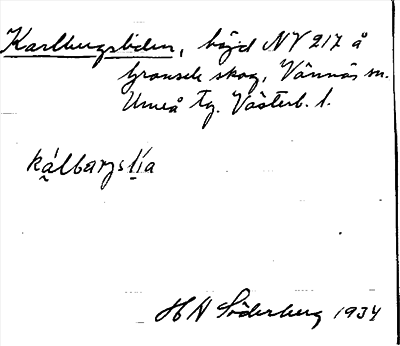 Karlbergsliden, höjd NV 217 å
Gransele skog, Vännäs sn.
Umeå tg. Västerb. l.
kálbarjslía
H A Söderberg 1934